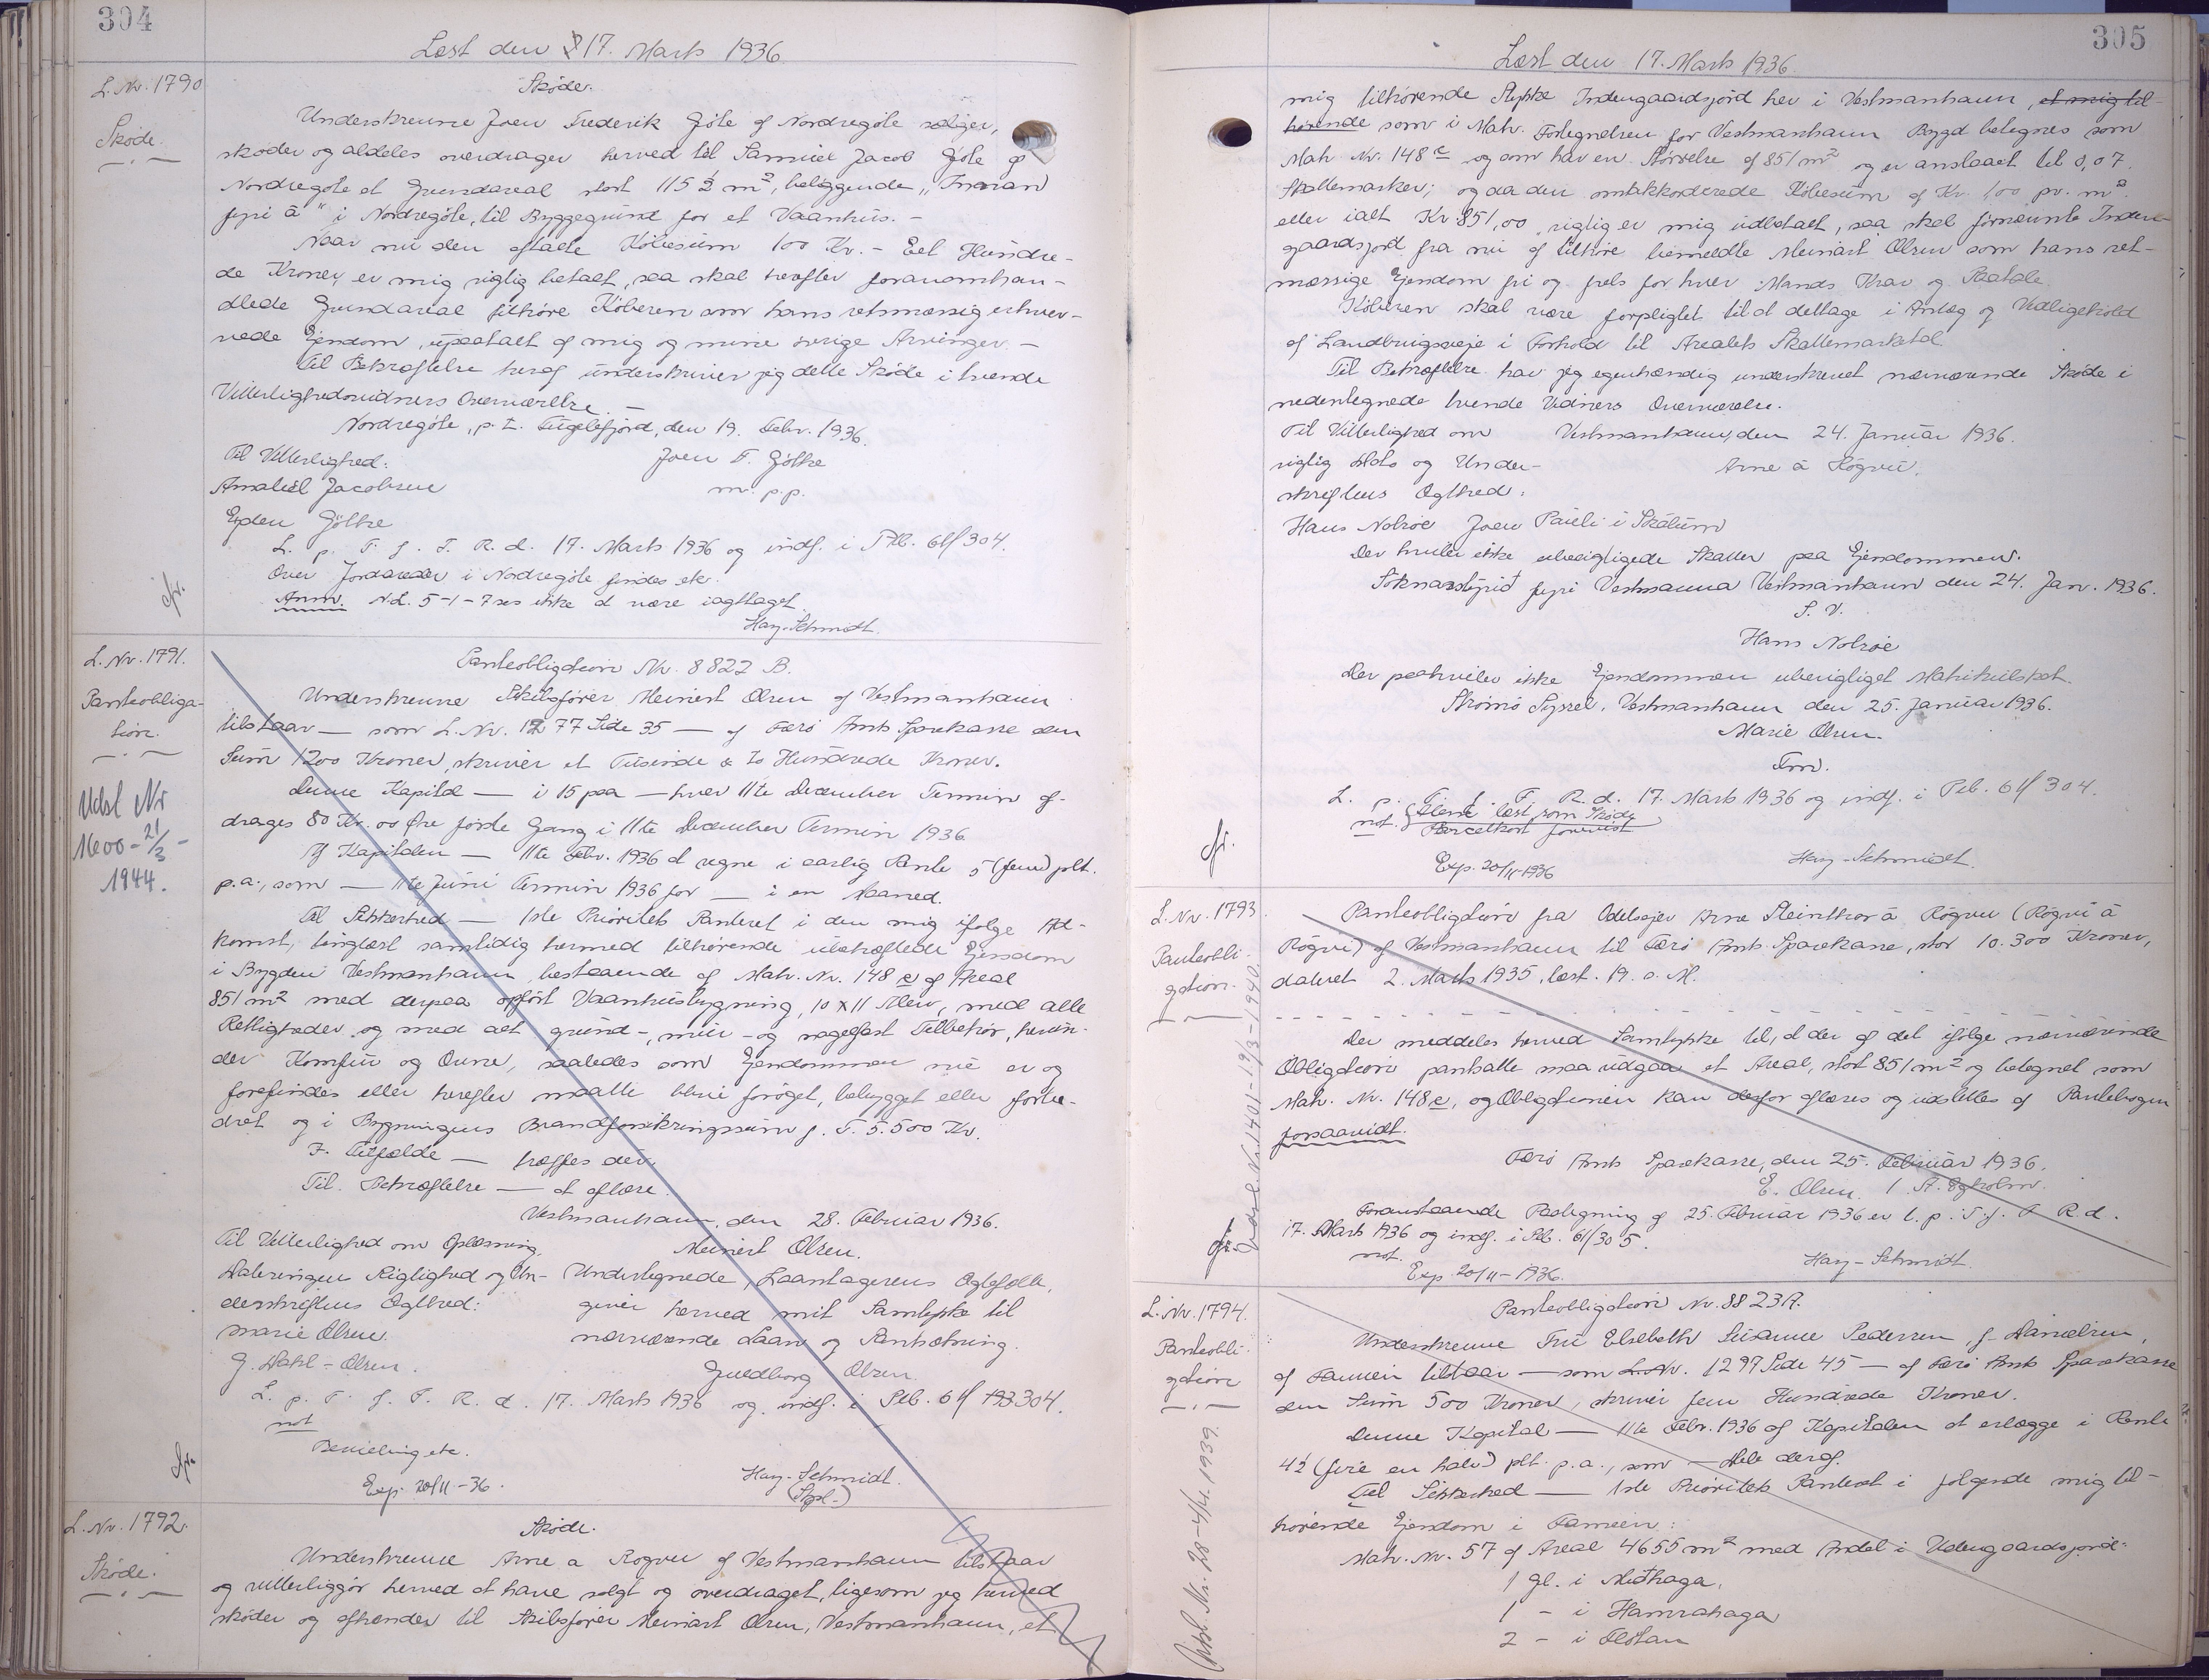 304
Læst den 17. Marts 1936
L. Nr. 1790
Skøde.
Skøde.
Underskrevne Joen Frederik Göte af Nordregöte sælger,
skøder og aldeles overdrager herved til Samuel Jacob Göte af
Nordregöte et Grundareal stort 115 ½ m², beliggende „Innan
fyri á" i Nordregöte, til Byggegrund for et Vaanhus. -
Naar nu den aftalte Købesum 100 Kr. - Eet Hundre-
de Kroner, er mig rigtig betalt, saa skal herefter foranomhan-
dlede Grundareal tilhøre Køberen som hans retsmæssig erhver-
vede Ejendom, upaatalt af mig og mine øvrige Arvinger. -
Til Bekræftelse heraf underskriver jeg dette Skøde i tvende
Vitterlighedsvidners Overværelse. -
Nordregöte, p. t. Fuglefjord, den 19. Febr. 1936.
Til Vitterlighed: Joen F. Götke
Amaliel Jacobsen m. p. p.
Ejden Götke
L. p. T. f. F. R. d. 17. Marts 1936 og indf. i Pb. 6 lf 304.
Over Jordareder i Nordregöte findes etc.
Anm. N.L. 5-1-7 ses ikke at være iagttaget.
Hary-Schmidt.
L. Nr. 1791.
Panteobliga-
tion.
Udsl Nr
1600 - 21/3 -
1944.
Panteobligation Nr. 8822 B.
Underskrevne Skibsfører Meinert Olsen af Vestmanhavn
tilstaar — som L. Nr. 1277 Side 35 — af Færø Amts Sparekasse den
Sum 1200 Kroner, skriver et Tusinde & to Hundrede Kroner.
Denne Kapital — i 15 paa — hver 11te December Termin af-
drages 80 Kr. 00 Øre første Gang i 11te December Termin 1936
Af Kapitalen — 11te Febr. 1936 at regne i aarlig Rente 5 (fem) pCt.
p.a., som — 11te Juni Termin 1936 for — i en Maaned.
Til Sikkerhed — 1ste Prioritets Panteret i den mig ifølge Ad-
komst, tinglæst samtidig hermed tilhørende ubehæftede Ejendom
i Bygden Vestmanhavn, bestaaende af Matr. Nr. 148 e af Areal
851 m² med derpaa opført Vaanhusbygning, 10 x 11 Alen, med alle
Rettigheder og med alt grund-, mur- og nagelfast Tilbehør, herun-
der Komfur og Ovne, saaledes som Ejendommen nu er og
forefindes eller herefter maatte blive forøget, bebygget eller forbe-
dret og i Bygningens Brandforsikringssum f. T. 5.500 Kr.
I Tilfælde — træffes der.
Til Bekræftelse — at aflæse.
Vestmanhavn, den 28. Februar 1936.
Til Vitterlighed om Oplæsning, Meinert Olsen.
Dateringen Rigtighed og Un- Undertegnede, Laantagerens Ægtefælle,
derskriftens Ægthed: giver herved mit Samtykke til
Marie Olsen. nærværende Laan og Pantsætning.
G. Dahl-Olsen. Guldborg Olsen.
L. p. T. f. F. R. d. 17. Marts 1936 og indf. i Pb. 6 lf 304.
not
Bevieling etc.
Exp. 20/11-36. Hary-Schmidt.
L. Nr. 1792.
Skøde.
Skøde.
Underskrevne Arne a Rogvu af Vestmanhavn tilstaar
og vitterliggør herved at have solgt og overdraget, ligesom jeg herved
skøder og afhænder til Skibsfører Meinart Olsen, Vestmanhavn, et
305
Læst den 17. Marts 1936.
mig tilhørende Stykke Indengaardsjord her i Vestmanhavn, et mig til-
hørende som i Matr. Fortegnelsen for Vestmanhavn Bygd betegnes som
Matr. Nr. 148 e og som har en Størrelse af 851 m² og er anslaaet til 0,07
Skattemarker; og da den omakkorderede Købesum af Kr. 1,00 pr. m²
eller ialt Kr. 851,00, rigtig er mig udbetalt, saa skal fornævnte Inden-
gaardsjord fra nu af tilhøre bemeldte Meinart Olsen som hans ret-
mæssige Ejendom fri og frels for hver Mands Krav og Paatale.
Køberen skal være forpligtet til at deltage i Anlæg og Vedligehold
af Landbrugsveje i Forhold til Arealets Skattemarketal.
Til Bekræftelse har jeg egenhændig underskrevet nærværende Skøde i
nedentegnede tvende Vidners Overværelse.
Til Vitterlighed om Vestmanhavn, den 24. Januar 1936.
rigtig Dato og Under- Arne á Rógvu.
skriftens Ægthed:
Hans Nolsøe Joen Pauli i Skálum
Der hviler ikke uberigtigede Skatter paa Ejendommen.
Soknarstýrið fyri Vestmanna Vestmanhavn den 24. Jan. 1936.
S. V.
Hans Nolsøe
Der paahviler ikke Ejendommen uberigtiget Matrikulskat.
Strømø Syssel, Vestmanhavn den 25. Januar 1936.
Marie Olsen.
Fm.
L. p. T. f. F. R. d. 17. Marts 1936 og indf. i Pb. 6 lf 304.
not. Alene læst som Skøde
Parcelkort forevist
Exp. 20/11-1936 Hary-Schmidt.
L. Nr. 1793.
Panteobli-
gation.
Udsl. L. Nr. 1401 - 19/3-1940
Panteobligation fra Odelsejer Arne Steinthor á Rógvu (Rógvi á
Rógvu) af Vestmanhavn til Færø Amts Sparekasse, stor 10.300 Kroner,
dateret 2. Marts 1935, læst. 19. s. M.
Der meddeles herved Samtykke til, at der af det ifølge nærværende
Obligation pantsatte maa udgaa et Areal, stort 851 m² og betegnet som
Matr. Nr. 148 e, og Obligationen kan derfor aflæses og udslettes af Pantebogen
forsaavidt.
Færø Amts Sparekasse, den 25. Februar 1936.
E. Olsen. / A. Egholm.
Foranstaaende Paategning af 25. Februar 1936 er l. p. T. f. F. R. d.
17. Marts 1936 og indf. i Pb. 6 lf 305.
not.
Exp. 20/11-1936. Hary-Schmidt.
L. Nr. 1794.
Panteobli-
gation
Udsl. Nr. 28 - 4/4. 1939.
Panteobligation Nr. 8823 A.
Underskrevne Fru Elsebeth Susanne Pedersen, f. Danielsen,
af Famien tilstaar — som L. Nr. 1297 Side 45 — af Færø Amts Sparekasse
den Sum 500 Kroner, skriver fem Hundrede Kroner.
Denne Kapital — 11te Febr. 1936 af Kapitalen at erlægge i Rente
4½ (fire en halv) pCt. p.a., som — Dele deraf.
Til Sikkerhed — 1ste Prioritets Panteret i følgende mig til-
hørende Ejendom i Famien:
Matr. Nr. 57 af Areal 4655 m² med Andel i Udengaardsjord:
1 gl. i Miðhaga.
1 - i Hamrahaga
2 - i Fløtan